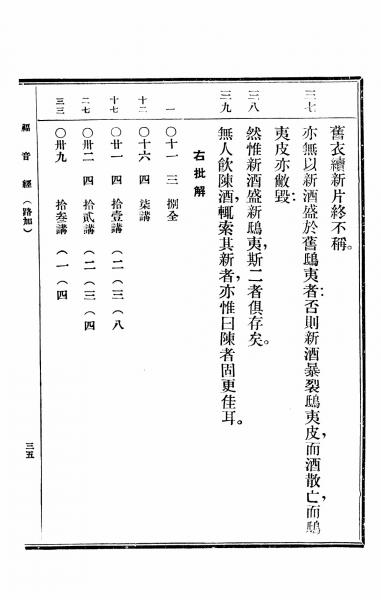 舊衣續新片終不稱。
三七 亦無以新酒盛於舊鴟夷者：否則新酒暴裂鴟夷皮，而酒散亡，而鴟
夷皮亦敝毀：
三八 然惟新酒盛新鴟夷，斯二者俱存矣。
三九 無人飲陳酒，輒索其新者，亦惟曰陳者固更佳耳。
右批解
一 〇十一 三 捌全
十二 〇十六 四 柒講
十七 〇廿一 四 拾壹講 (二 (三 (八
二七 〇卅二 四 拾貳講 (二 (三 (四
三三 〇卅九 拾叄講 (一 (四
福音經（路加） 三五